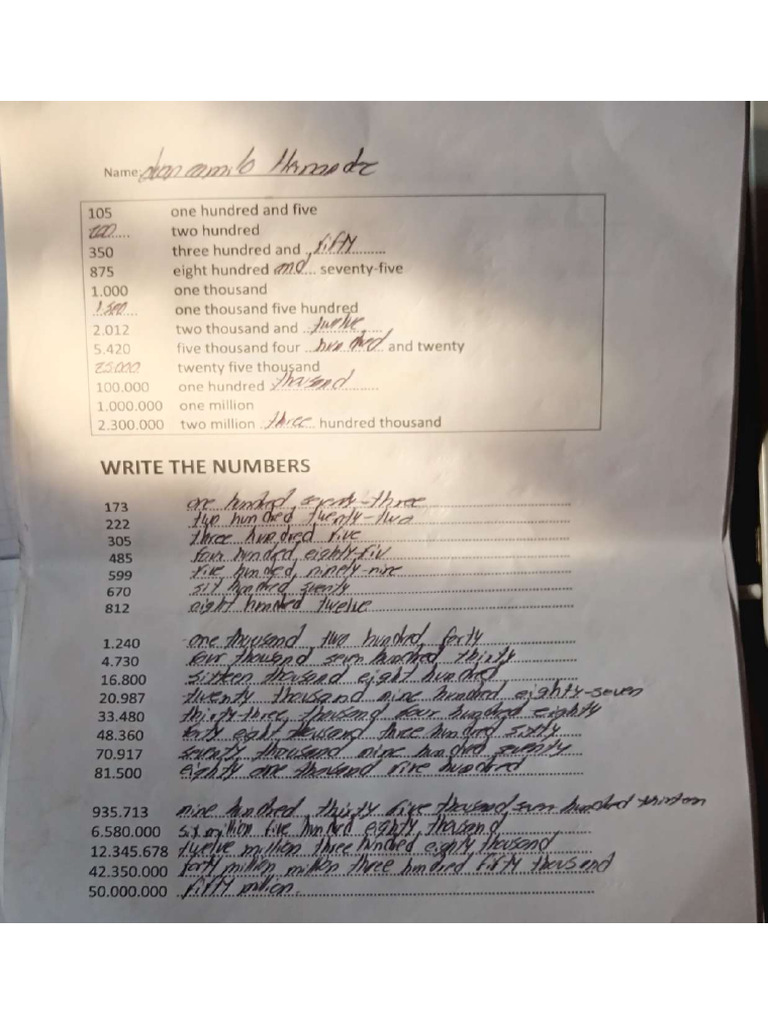 Name:
105 one hundred and five
200 two hundred
350 three hundred and fifty
875 eight hundred and seventy-five
1.000 one thousand
1.500 one thousand five hundred
2.012 two thousand and twelve
5.420 five thousand four hundred and twenty
25.000 twenty five thousand
100.000 one hundred thousand
1.000.000 one million
2.300.000 two million three hundred thousand
WRITE THE NUMBERS
173 one hundred, seventy-three
222 two hundred twenty-two
305 three hundred five
485 four hundred, eighty-fiv
599 five hundred, ninety-nine
670 six hundred seventy
812 eight hundred twelve
1.240 one thousand, two hundred, forty
4.730 four thousand, seven hundred, thirty
16.800 sixteen thousand eight hundred
20.987 twenty thousand nine hundred eighty-seven
33.480 thirty-three, thousand four hundred eighty
48.360 forty eight thousand three hundred sixty
70.917 seventy thousand nine hundred seventy
81.500 eighty one thousand five hundred
935.713 nine hundred, thirty five thousand, seven hundred
6.580.000 six million five hundred eighty, thousand
12.345.678 twelve million three hundred eighty thousand
42.350.000 forty million, million three hundred fifty thousand
50.000.000 fifty million